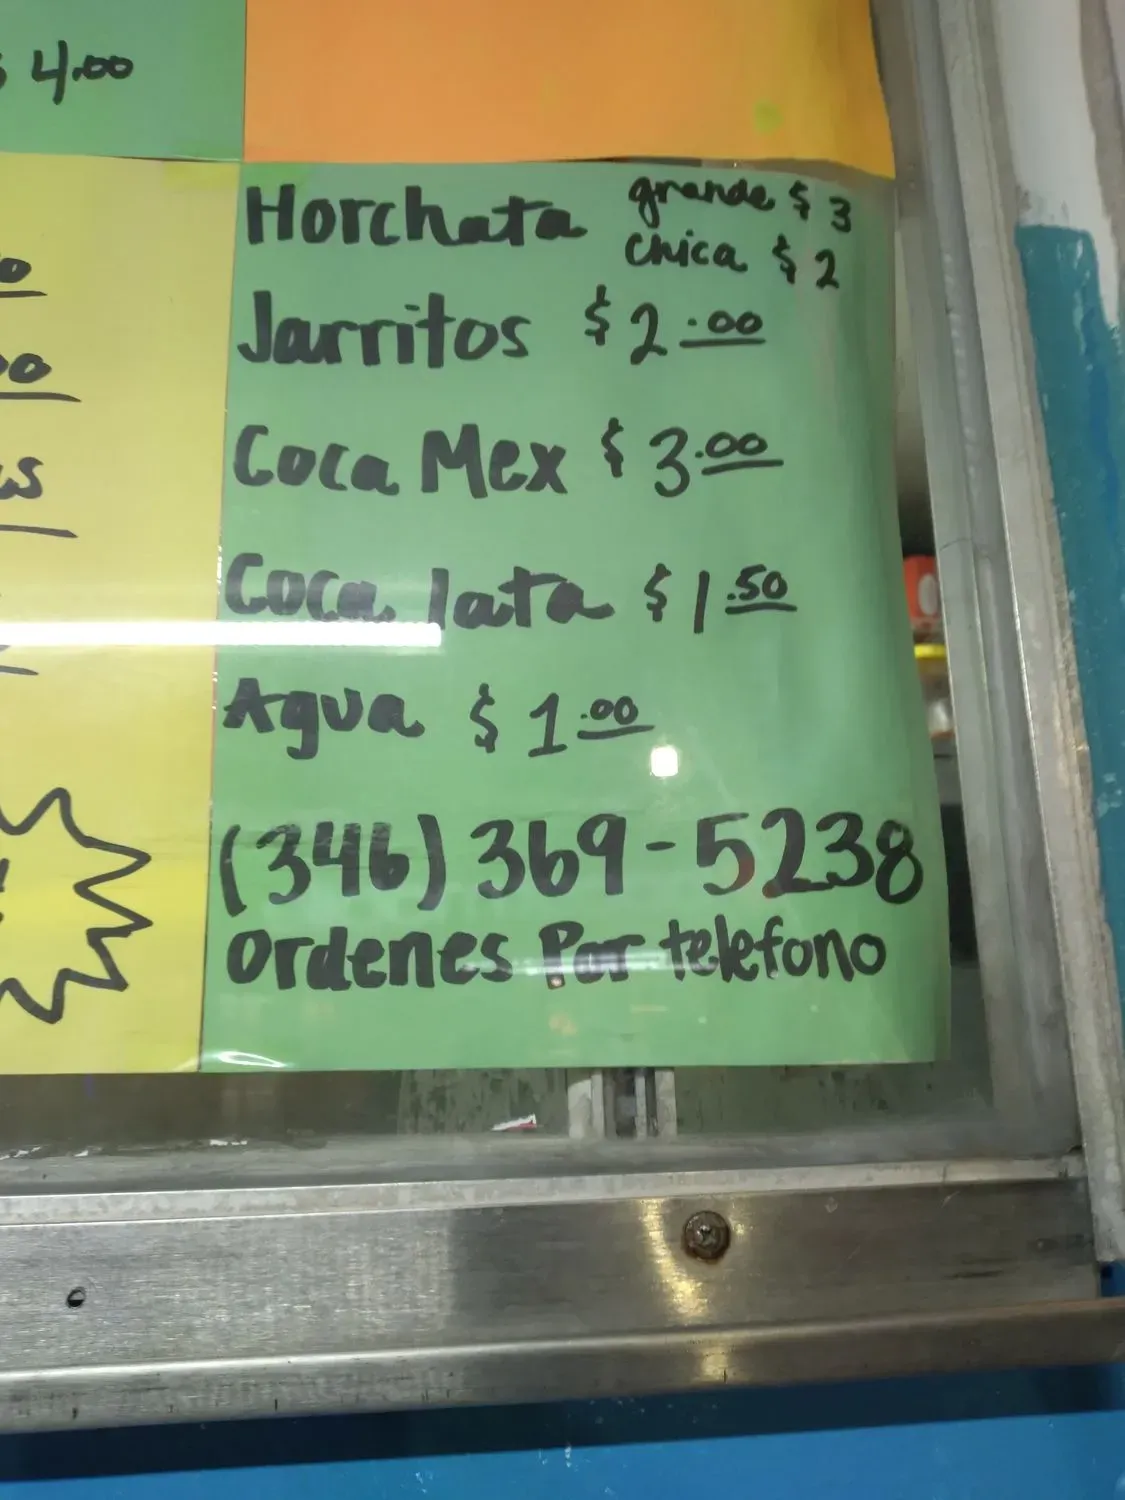 $ 4.00
Horchata grande $ 3
chica $ 2
Jarritos $ 2.00
Coca Mex $ 3.00
Coca lata $ 1.50
Agua $ 1.00
(346) 369-5238
Ordenes Por telefono